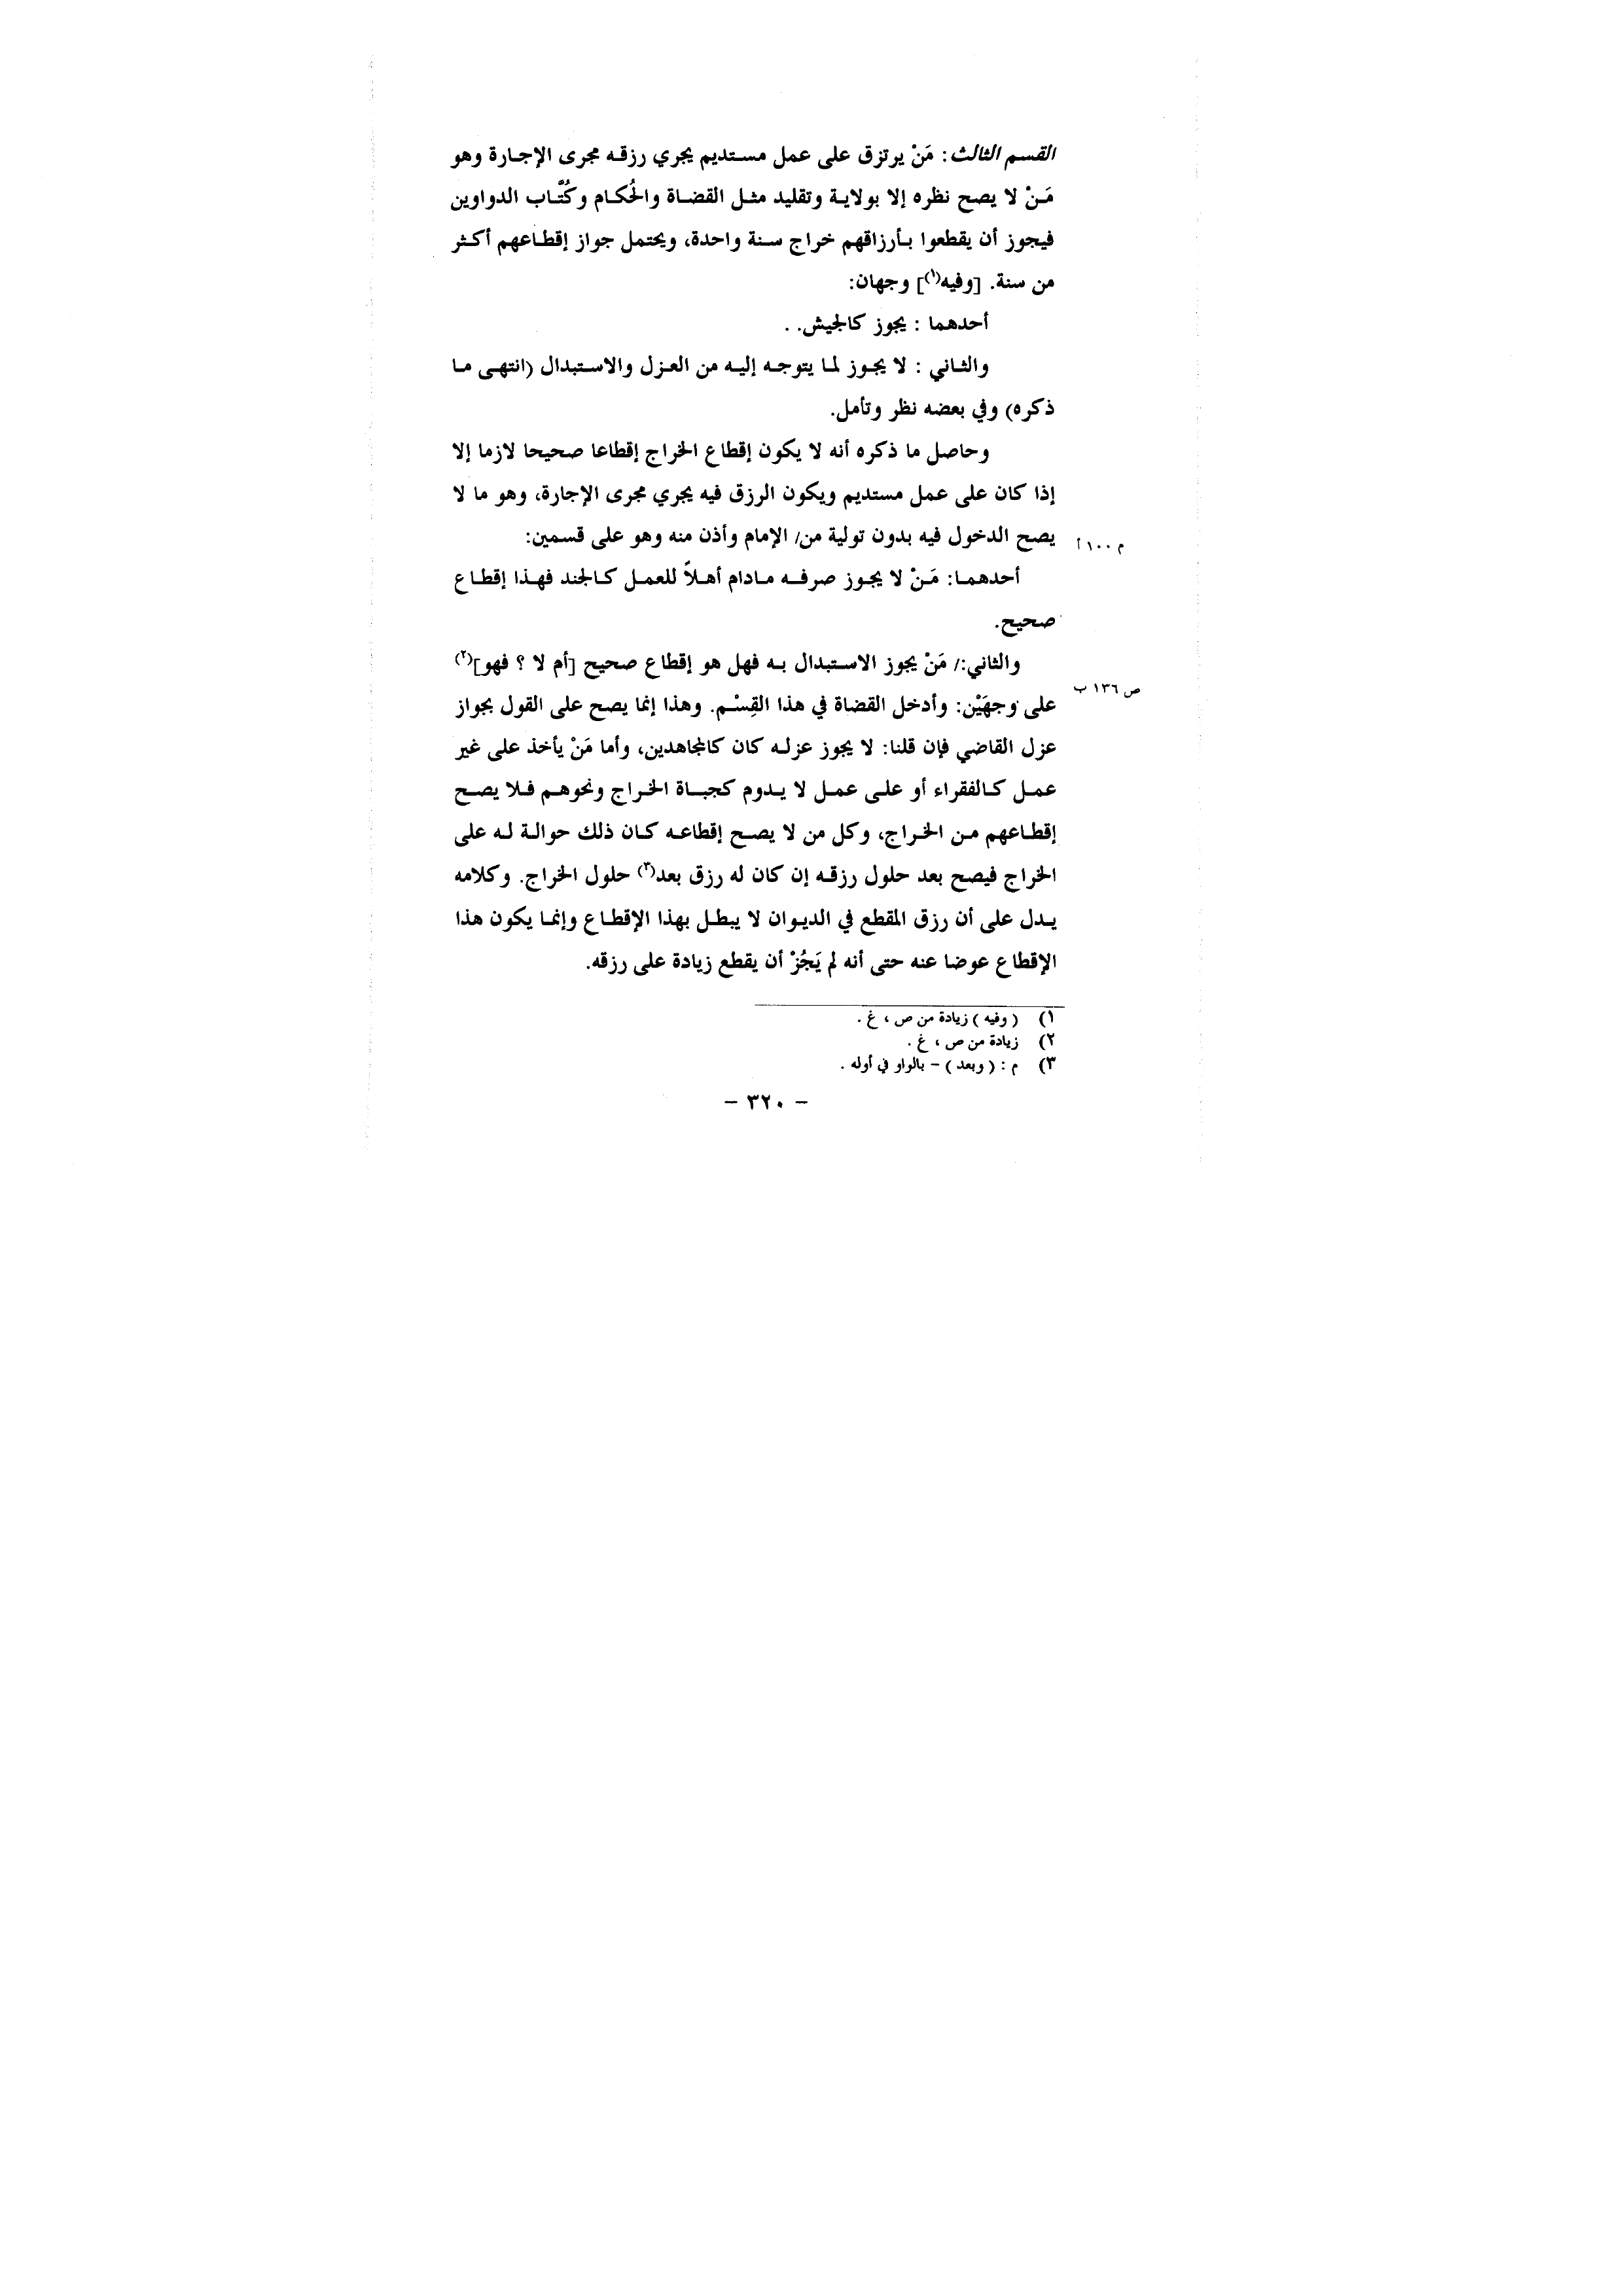 القسم الثالث: مَنْ يرتزق على عمل مستديم يجري رزقه مجرى الإجارة وهو
مَنْ لا يصح نظره إلا بولاية وتقليد مثل القضاة والحُكام وكُتَّاب الدواوين
فيجوز أن يقطعوا بأرزاقهم خراج سنة واحدة، ويحتمل جواز إقطاعهم أكثر
من سنة. [وفيه(١)] وجهان:
أحدهما : يجوز كالجيش. .
والثاني : لا يجوز لما يتوجه إليه من العزل والاستبدال (انتهى ما
ذكره) وفي بعضه نظر وتأمل.
وحاصل ما ذكره أنه لا يكون إقطاع الخراج إقطاعا صحيحا لازما إلا
إذا كان على عمل مستديم ويكون الرزق فيه يجري مجرى الإجارة، وهو ما لا
يصح الدخول فيه بدون تولية من/ الإمام وأذن منه وهو على قسمين:
م ١٠٠ أ
أحدهما: مَنْ لا يجوز صرفه مادام أهلاً للعمل كالجند فهذا إقطاع
صحيح.
والثاني:/ مَنْ يجوز الاستبدال به فهل هو إقطاع صحيح [أم لا ؟ فهو](٢)
ص ١٣٦ ب
على وجهَيْن: وأدخل القضاة في هذا القِسْم. وهذا إنما يصح على القول بجواز
عزل القاضي فإن قلنا: لا يجوز عزله كان كالمجاهدين، وأما مَنْ يأخذ على غير
عمل كالفقراء أو على عمل لا يدوم كجباة الخراج ونحوهم فلا يصح
إقطاعهم من الخراج، وكل من لا يصح إقطاعه كان ذلك حوالة له على
الخراج فيصح بعد حلول رزقه إن كان له رزق بعد(٣) حلول الخراج. وكلامه
يدل على أن رزق المقطع في الديوان لا يبطل بهذا الإقطاع وإنما يكون هذا
الإقطاع عوضا عنه حتى أنه لم يَجُزْ أن يقطع زيادة على رزقه.
١) ( وفيه ) زيادة من ص ، غ .
٢) زيادة من ص ، غ .
٣) م : ( وبعد ) – بالواو في أوله .
– ٣٢٠ –